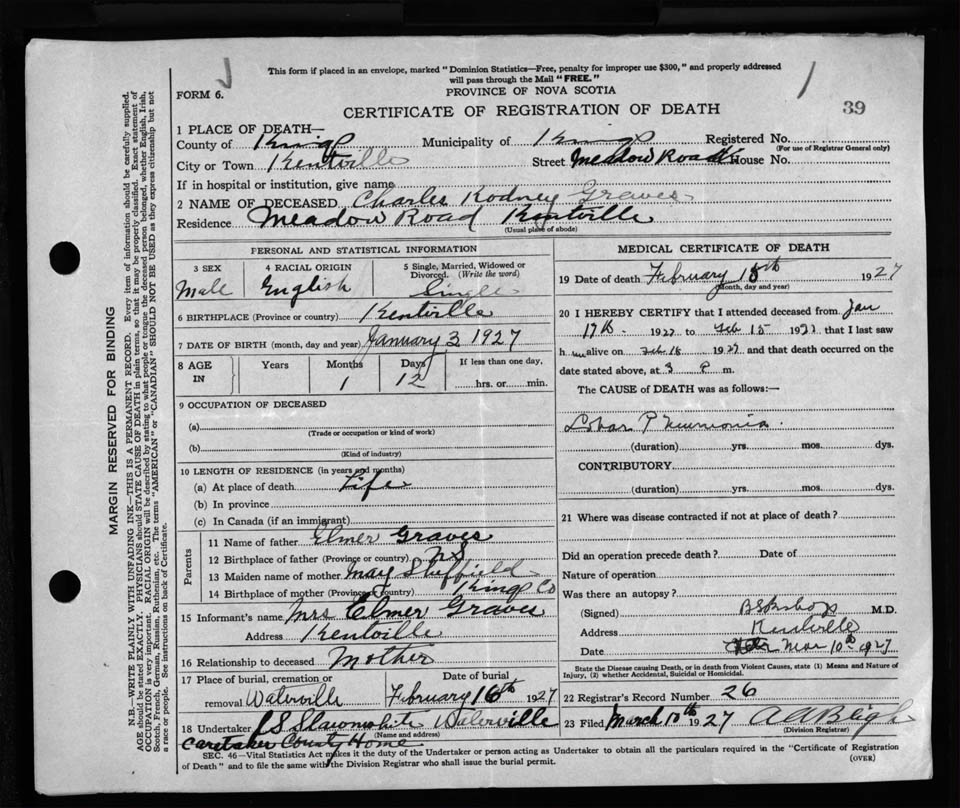 This form if placed in an envelope, marked "Dominion Statistics—Free, penalty for improper use $300," and properly addressed
will pass through the Mail "FREE."
FORM 6.
PROVINCE OF NOVA SCOTIA
CERTIFICATE OF REGISTRATION OF DEATH
39
1 PLACE OF DEATH—
County of Kings Municipality of Kings Registered No.
(For use of Registrar General only)
City or Town Kentville Street Meadow Road House No.
If in hospital or institution, give name
2 NAME OF DECEASED Charles Rodney Graves
Residence Meadow Road Kentville
(Usual place of abode)
PERSONAL AND STATISTICAL INFORMATION
3 SEX 4 RACIAL ORIGIN 5 Single, Married, Widowed or Divorced. (Write the word)
Male English Single
6 BIRTHPLACE (Province or country) Kentville
7 DATE OF BIRTH (month, day and year) January 3 1927
8 AGE IN Years Months Days If less than one day.
1 12 hrs. or min.
9 OCCUPATION OF DECEASED
(a)
(Trade or occupation or kind of work)
(b)
(Kind of industry)
10 LENGTH OF RESIDENCE (in years and months)
(a) At place of death Life
(b) In province
(c) In Canada (if an immigrant)
Parents
11 Name of father Elmer Graves
12 Birthplace of father (Province or country) N S
13 Maiden name of mother May Sheffield
14 Birthplace of mother (Province or country) Kings Co
15 Informant's name Mrs Elmer Graves
Address Kentville
16 Relationship to deceased Mother
17 Place of burial, cremation or removal Date of burial
Waterville February 16th 1927
18 Undertaker Waterville
(Name and address)
Caretaker County Home
MEDICAL CERTIFICATE OF DEATH
19 Date of death February 15th 1927
(Month, day and year)
20 I HEREBY CERTIFY that I attended deceased from Jan
17th 1927 to Feb 15 1927 that I last saw
h im alive on Feb 15 1927 and that death occurred on the
date stated above, at 3 P m.
The CAUSE OF DEATH was as follows:—
Lobar Pneumonia.
(duration) yrs. mos. dys.
CONTRIBUTORY
(duration) yrs. mos. dys.
21 Where was disease contracted if not at place of death?
Did an operation precede death? Date of
Nature of operation
Was there an autopsy?
(Signed) M.D.
Address Kentville
Date Mar 10th 1927
State the Disease causing Death, or in death from Violent Causes, state (1) Means and Nature of
Injury, (2) whether Accidental, Suicidal or Homicidal.
22 Registrar's Record Number 26
23 Filed March 10th 1927
(Division Registrar)
SEC. 46—Vital Statistics Act makes it the duty of the Undertaker or person acting as Undertaker to obtain all the particulars required in the "Certificate of Registration
of Death" and to file the same with the Division Registrar who shall issue the burial permit.
(OVER)
MARGIN RESERVED FOR BINDING
N.B.—WRITE PLAINLY WITH UNFADING INK—THIS IS A PERMANENT RECORD. Every item of information should be carefully supplied.
AGE should be stated EXACTLY. PHYSICIANS should STATE CAUSE OF DEATH in plain terms, so that it may be properly classified. Exact statement of
OCCUPATION is very important. RACIAL ORIGIN will be described by stating to what people or tongue the deceased person belonged, whether English, Irish,
Scotch, French, German, Russian, Ruthenian, etc. The terms "AMERICAN" or "CANADIAN" SHOULD NOT BE USED as they express citizenship but not
a race or people. See instructions on back of Certificate.